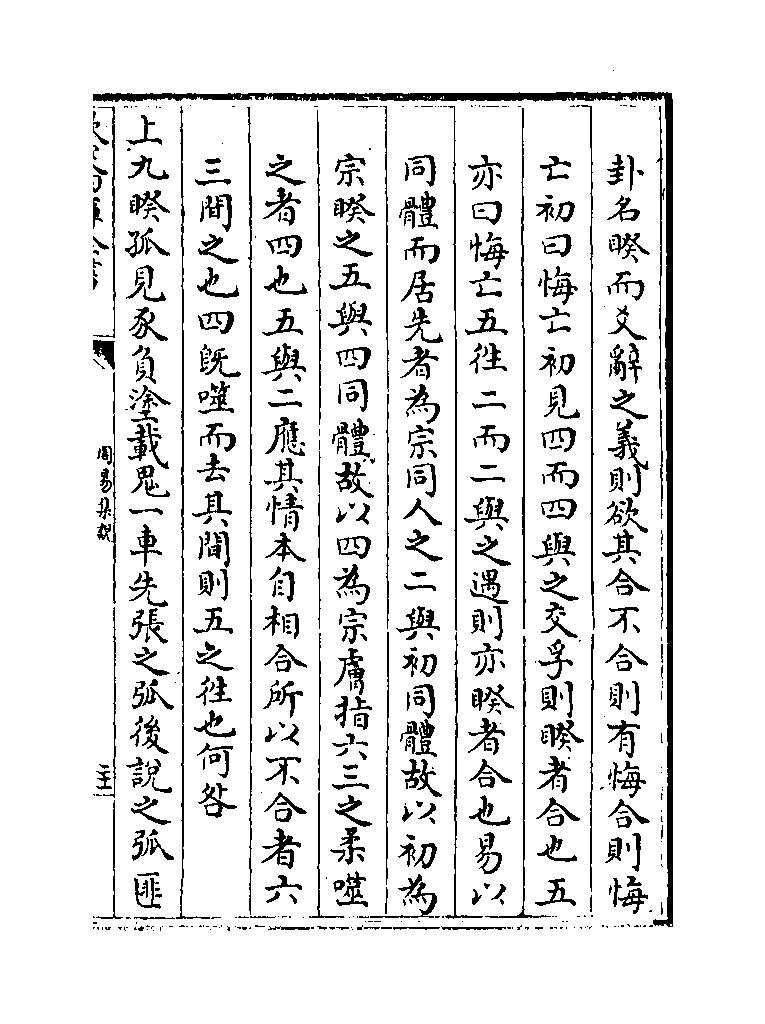 卦名睽而爻辭之義則欲其合不合則有悔合則悔
亡初曰悔亡初見四而四與之交孚則睽者合也五
亦曰悔亡五徃二而二與之遇則亦睽者合也易以
同體而居先者為宗同人之二與初同體故以初為
宗睽之五與四同體故以四為宗膚指六三之柔噬
之者四也五與二應其情本自相合所以不合者六
三間之也四既噬而去其間則五之徃也何咎
上九睽孤見豕負塗載鬼一車先張之弧後說之弧匪
周易集說